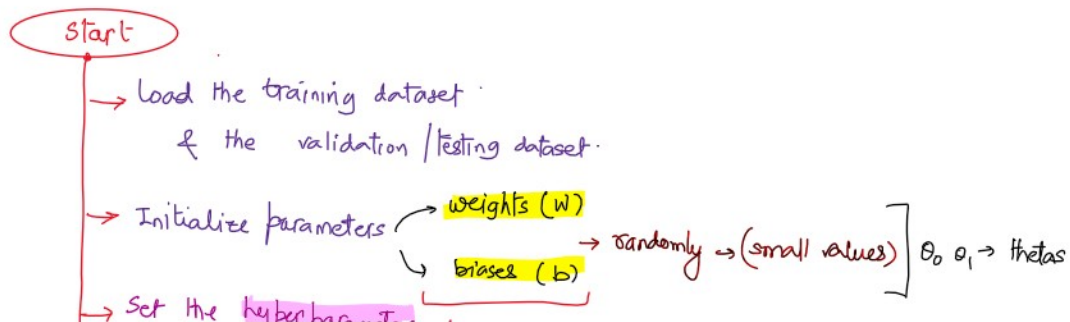 Start
→ Load the training dataset.
& the validation / testing dataset.
→ Initialize parameters
weights (W)
biases (b)
→ randomly → (small values)] θ₀ θ₁ → thetas
→ Set the